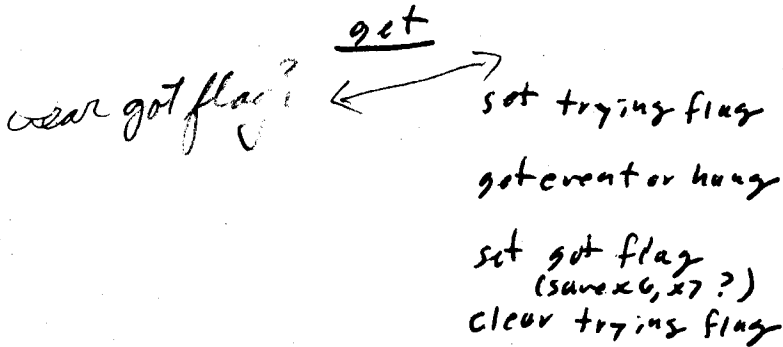 get
clear got flag?
set trying flag
get event or hung
set got flag
(save x6, x7 ?)
clear trying flag